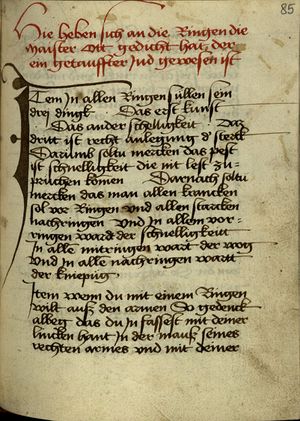 85
Hie heben sich an die Ringen die
maister ott gedicht hat der
ein getauffter Jud gewesen ist
Item In allen Ringen sullen sein
dreÿ dingk Das erst kunst
Das ander schelligkeit Daz
dritt ist recht anlegung d' sterck
Darumb soltu mercken das pest
ist schnelligkeit die nit lest zu
pruchen komen Darnach soltu
mercken das man allen krancken
sol vor Ringen Und allen starcken
nachringen Und In allem vor
ringen wardt der schnelligkeitt
In alle mitringen wart der wog
Und In alle nachringen wartt
der kniepüg
Item wenn du mit einem Ringen
wilt auß den armen So gedenck
albeg das du In fassest mit deiner
lincken hant In der mauß seines
rechten armes Und mit deiner